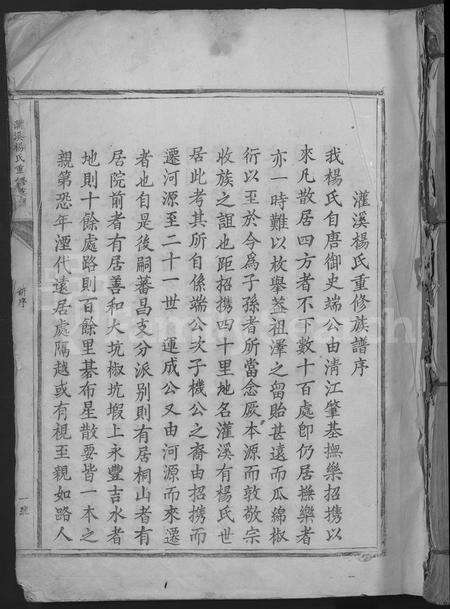 灌溪楊氏重修族譜序
我楊氏自唐御史端公由清江肇基撫樂招携以
來凡散居四方者不下數十百處卽仍居撫樂者
亦一時難以枚舉蓋祖澤之留貽甚遠而瓜綿椒
衍以至於今爲子孫者所當念厥本源而敦敬宗
收族之誼也距招携四十里地名灌溪有楊氏世
居此考其所自係端公次子機公之裔由招携而
遷河源至二十一世 運成公又由河源而來遷
者也自是後嗣蕃昌支分派别則有居桐山者有
居院前者有居善和大坑椒坑塅上永豐吉水者
地則十餘處路則百餘里碁布星散要皆一本之
親第恐年湮代遠居處隔越或有視至親如路人
灌溪楊氏重修族
序
一